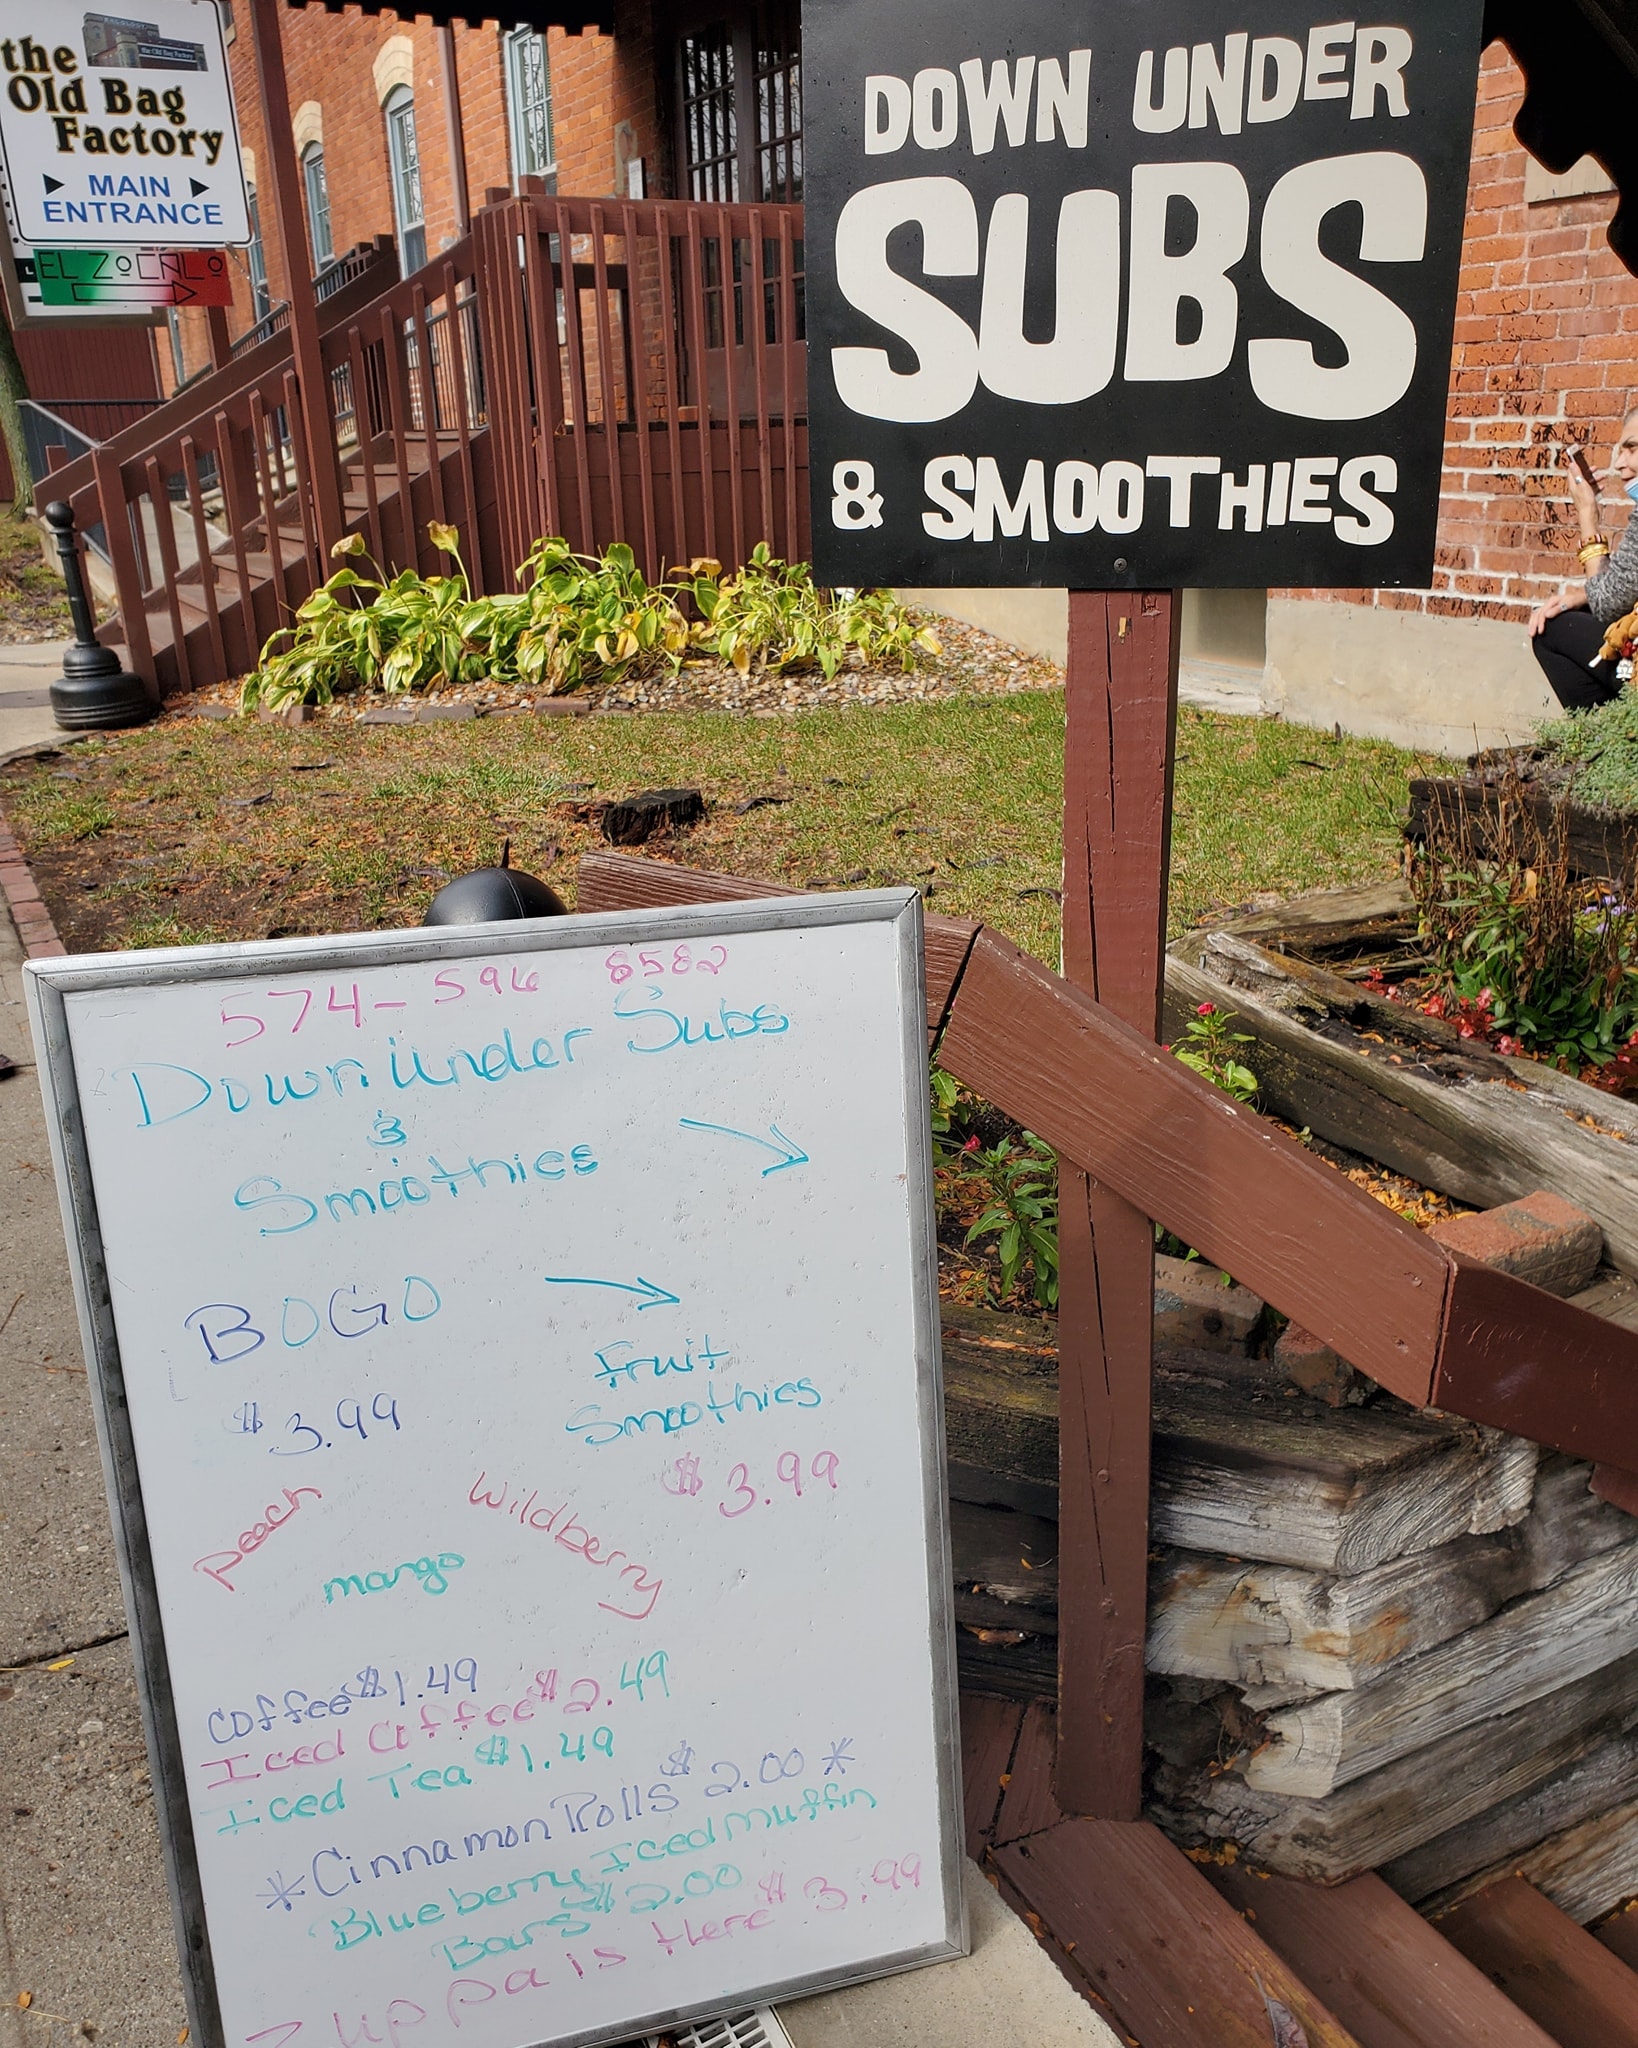 the
Old Bag
Factory
MAIN
ENTRANCE
EL ZOCALO
DOWN UNDER
SUBS
& SMOOTHIES
574-596 8582
Down Under Subs
&
Smoothies
BOGO
$3.99
Fruit
Smoothies
$3.99
Peach
mango
Wildberry
Coffee $1.49
Iced Coffee $2.49
Iced Tea $1.49
*Cinnamon Rolls $2.00*
Blueberry Iced muffin
Bars $2.00
Zuppa is Here $3.99